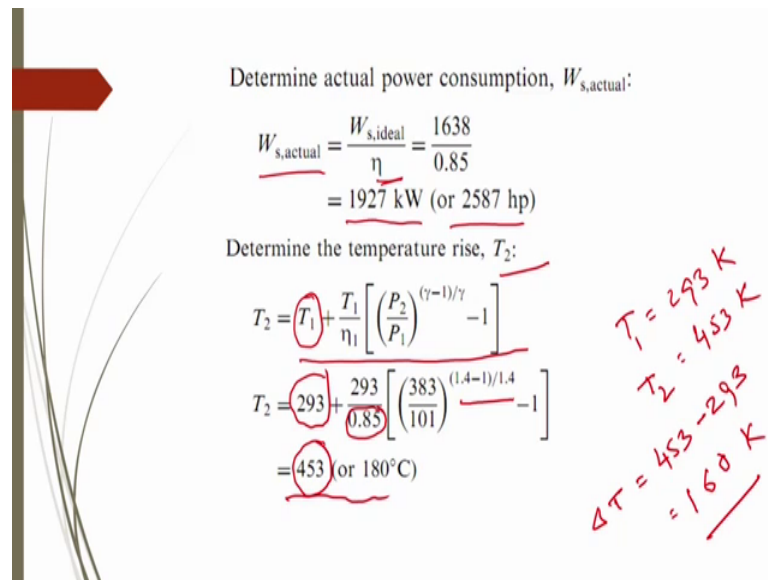 Determine actual power consumption, W_s,actual:
W_s,actual = W_s,ideal / η = 1638 / 0.85
= 1927 kW (or 2587 hp)
Determine the temperature rise, T₂:
T₂ = T₁ + T₁/η₁ [ (P₂/P₁)^(γ−1)/γ − 1 ]
T₂ = 293 + 293/0.85 [ (383/101)^(1.4−1)/1.4 − 1 ]
= 453 (or 180°C)
T₁ = 293 K
T₂ = 453 K
ΔT = 453 − 293
= 160 K